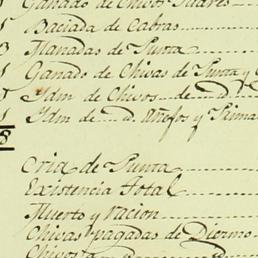 Ganado de Chivos
Baciada de Cabras
3 Manadas de Punta
Ganado de Chivas de Punta y
Idm de Chivos de d.
Idm de d. Añejos y
8
Cria de Punta
Existencia total
Muerto y racion
Chivas pagadas de Diezmo